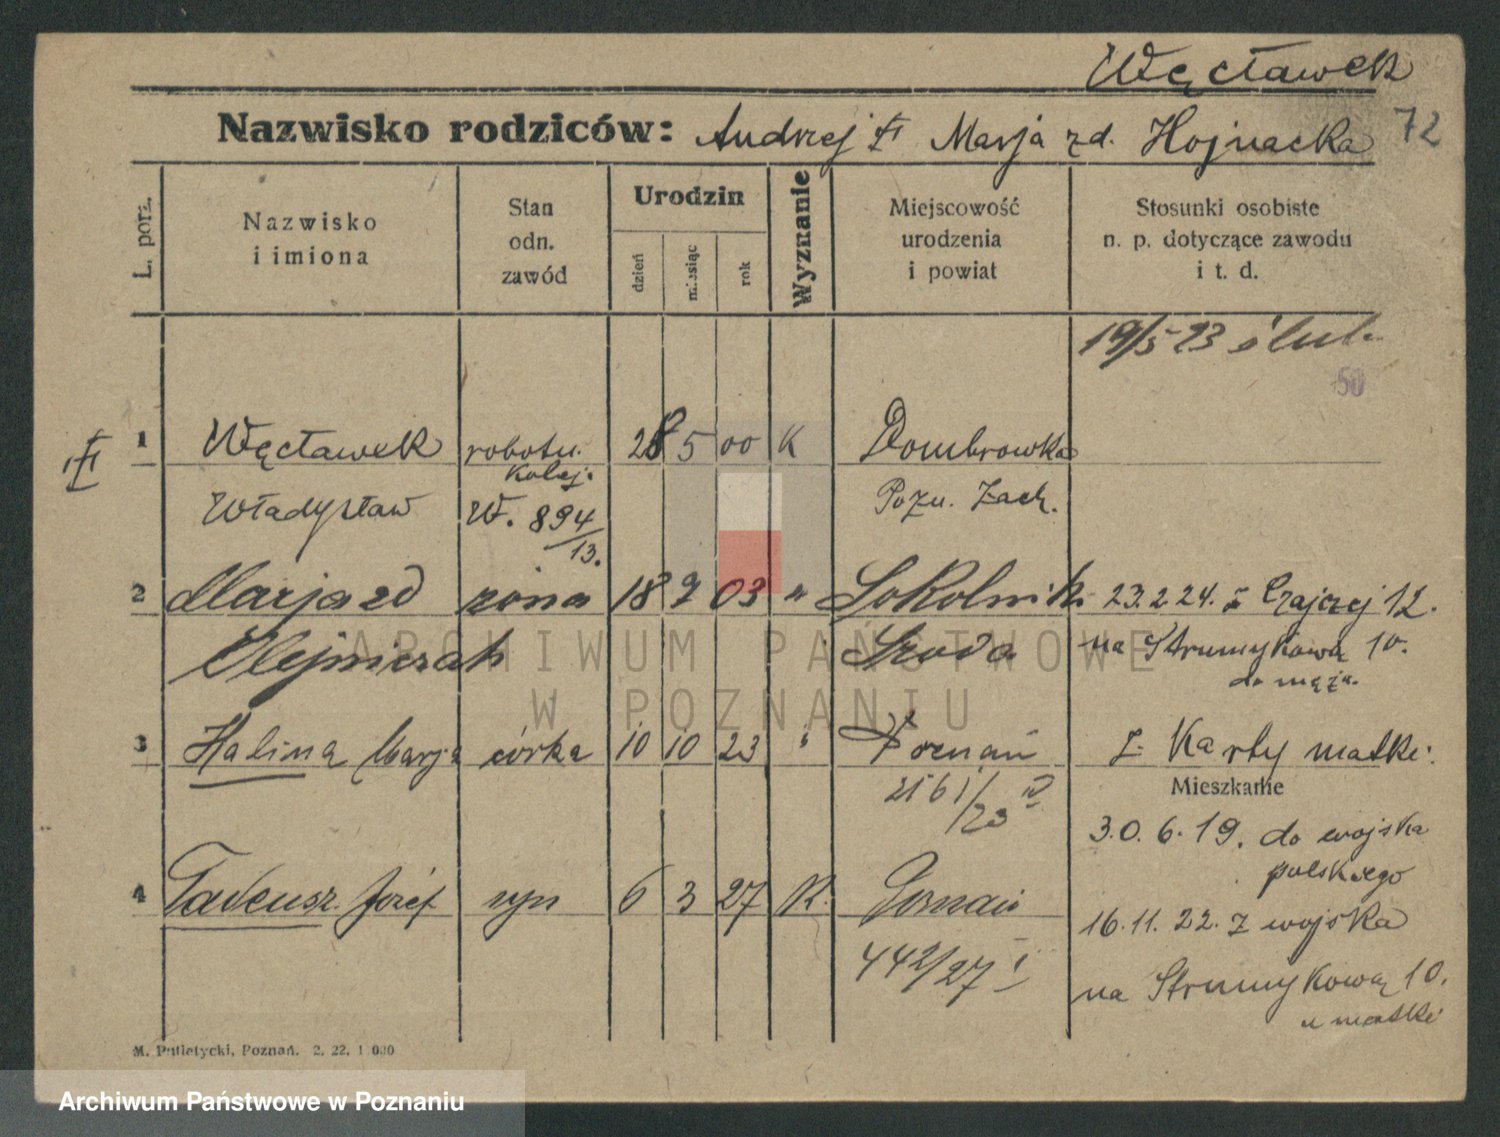 Węcławek
72
Nazwisko rodziców: Andrzej Marja zd. Hojnacka
L. porz.
Nazwisko i imiona
Stan odn. zawód
Urodzin
dzień
miesiąc
rok
Wyznanie
Miejscowość urodzenia i powiat
Stosunki osobiste n. p. dotyczące zawodu i t. d.
19/5 23 ślub
50
1 Węcławek robotn. 28 5 00 K Dombrowka
kolej.
Władysław W. 894/13. Pozn. Zach.
2 Marja zd żona 18 9 03 " Sokolniki 23.2 24. z Czajczej 12.
Olejniczak Środa na Strumykową 10.
do męża.
3 Halina Marja córka 10 10 23 " Poznań z Karty matki
2161/23 IV
Mieszkanie
30.6.19. do wojska
polskiego
4 Tadeusz Józef syn 6 3 27 K. Poznań
16.11.22. z wojska
442/27 I
na Strumykową 10.
u matki
M. Putiatycki, Poznań. 2. 22. 1 000
ARCHIWUM PAŃSTWOWE
W POZNANIU
Archiwum Państwowe w Poznaniu